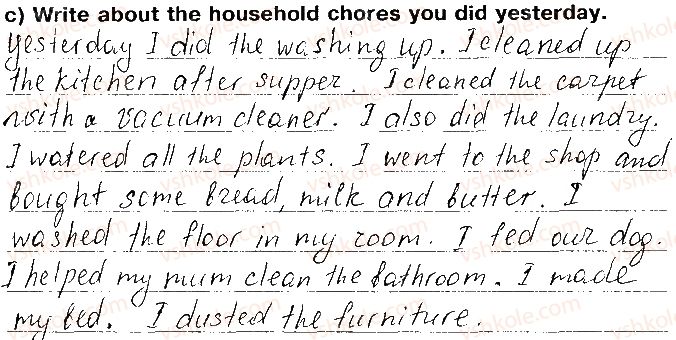 c) Write about the household chores you did yesterday.
Yesterday I did the washing up. I cleaned up
the kitchen after supper. I cleaned the carpet
with a vacuum cleaner. I also did the laundry.
I watered all the plants. I went to the shop and
bought some bread, milk and butter. I
washed the floor in my room. I fed our dog.
I helped my mum clean the bathroom. I made
my bed. I dusted the furniture.